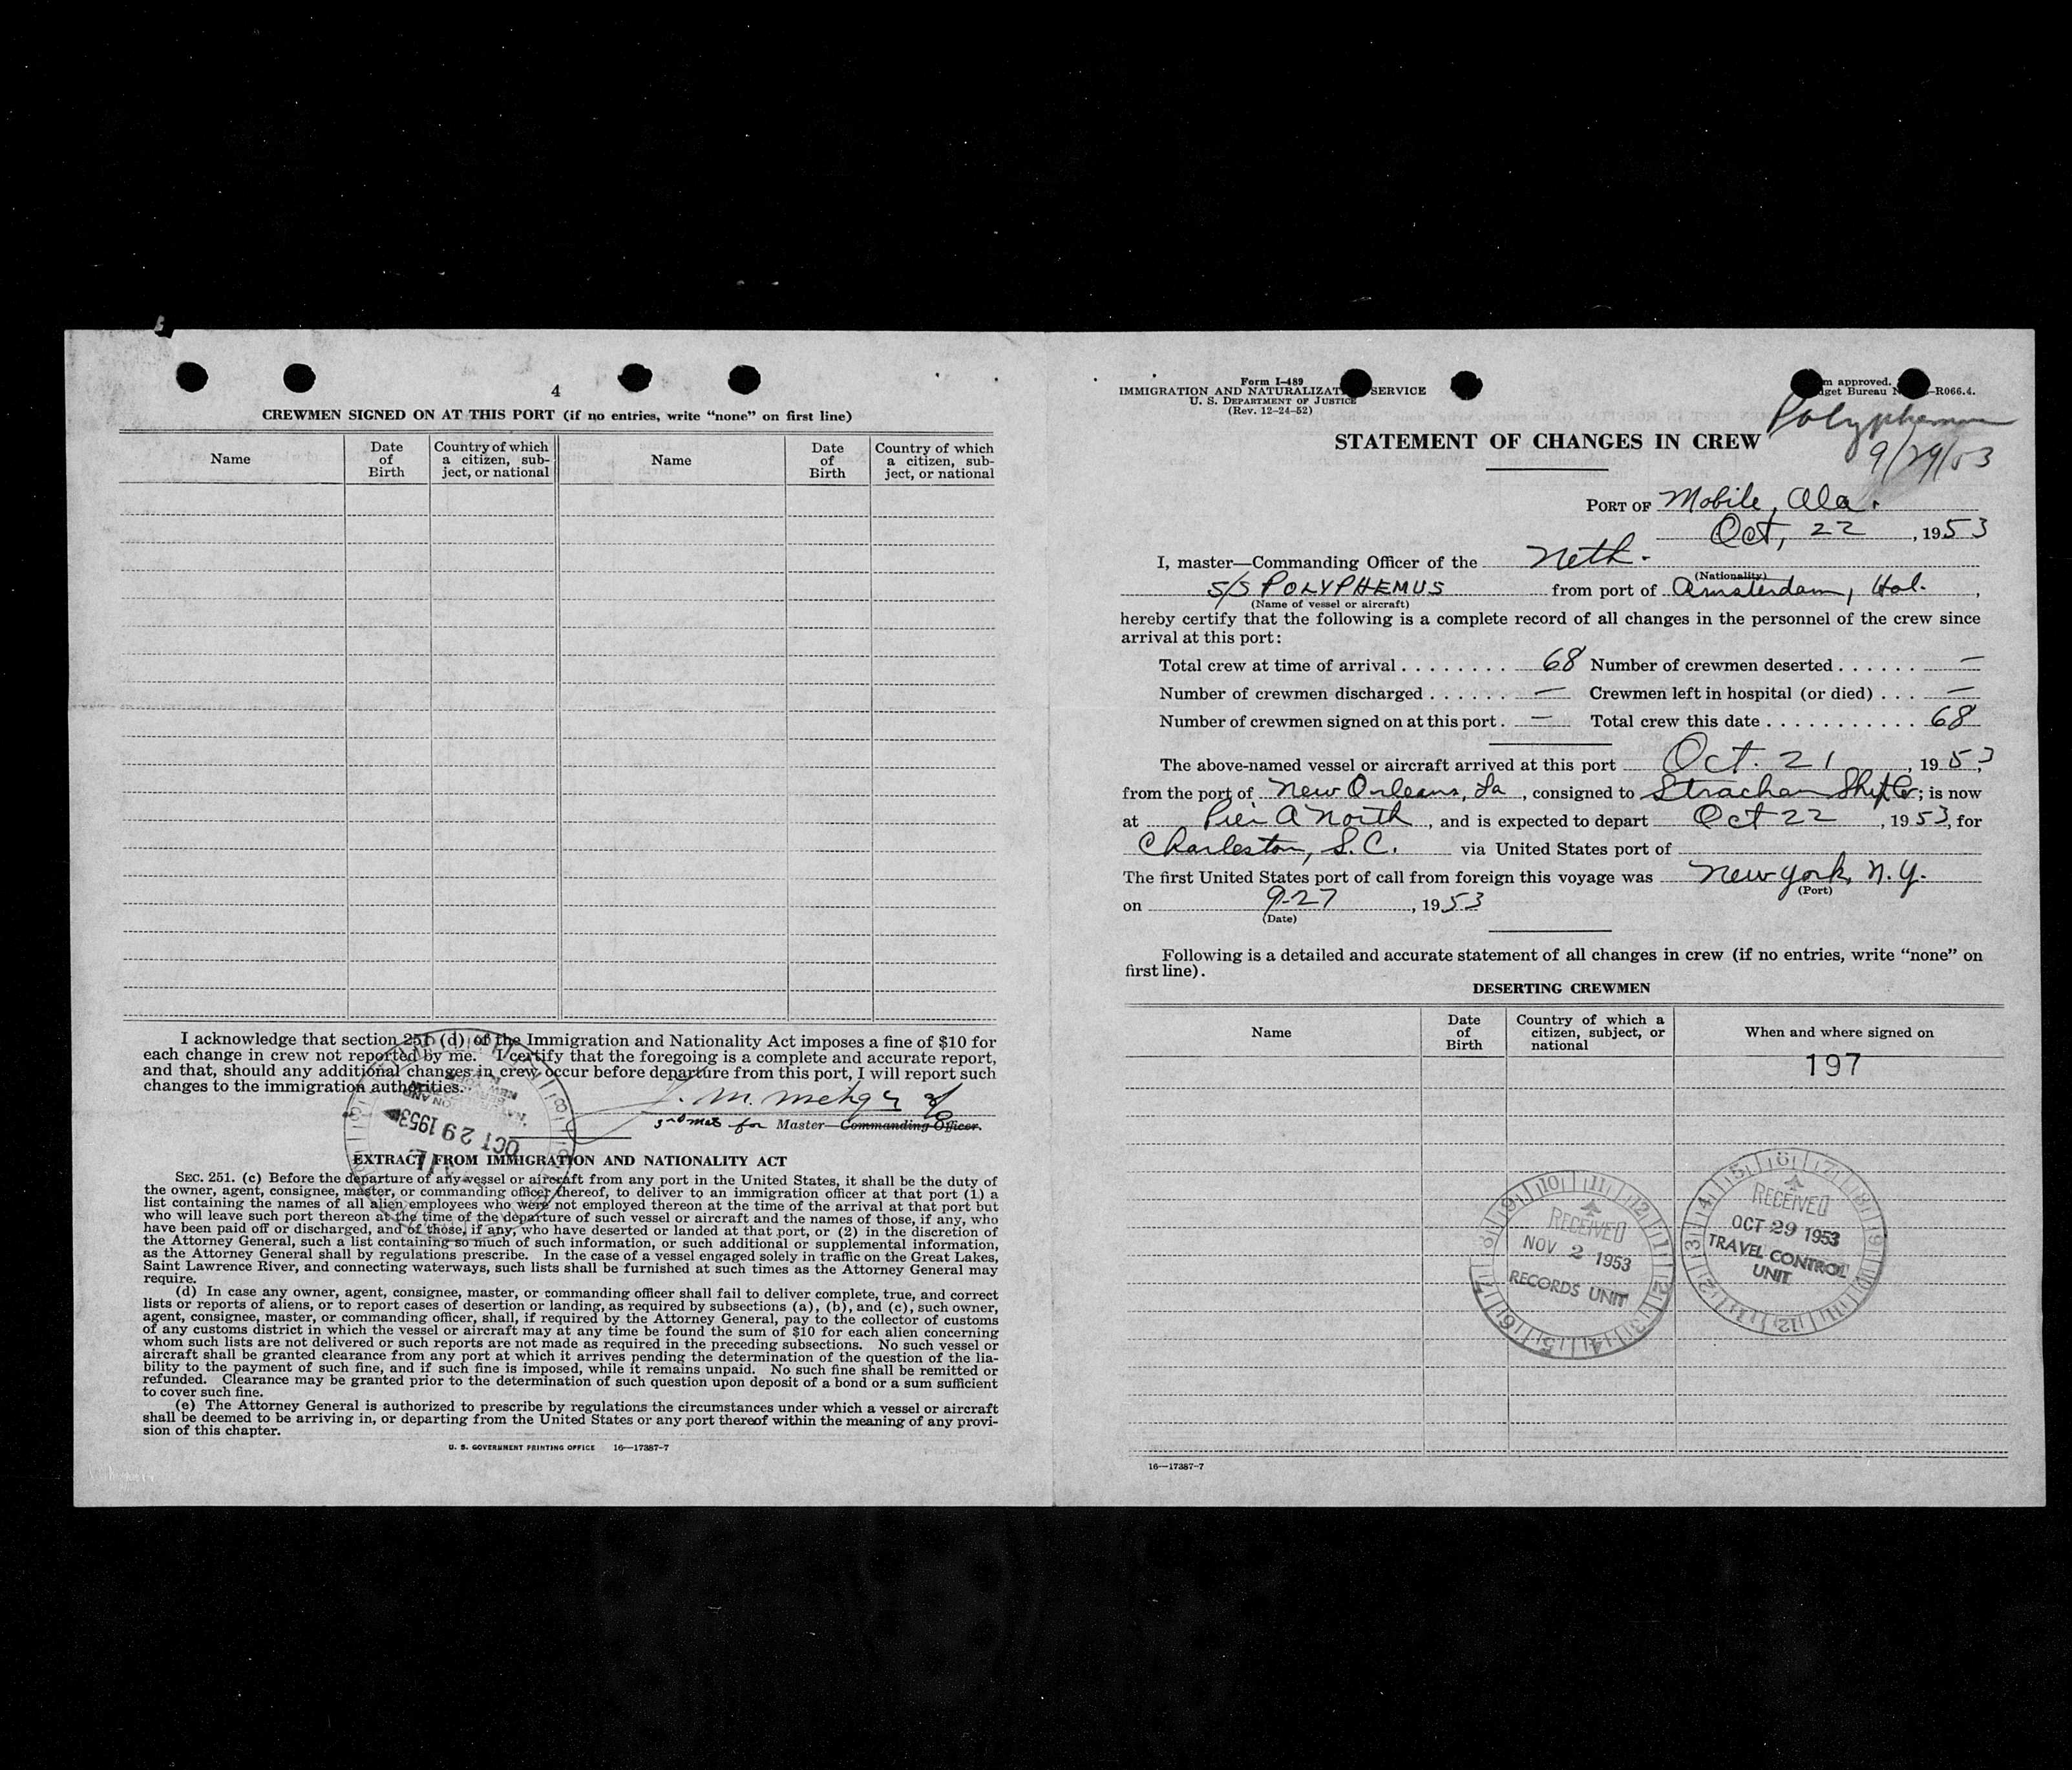 4
CREWMEN SIGNED ON AT THIS PORT (if no entries, write “none” on first line)
Name
Date of Birth
Country of which a citizen, sub-ject, or national
Name
Date of Birth
Country of which a citizen, sub-ject, or national
I acknowledge that section 251 (d) of the Immigration and Nationality Act imposes a fine of $10 for
each change in crew not reported by me. I certify that the foregoing is a complete and accurate report,
and that, should any additional changes in crew occur before departure from this port, I will report such
changes to the immigration authorities.
for Master—Commanding Officer.
OCT 29 1953
EXTRACT FROM IMMIGRATION AND NATIONALITY ACT
SEC. 251. (c) Before the departure of any vessel or aircraft from any port in the United States, it shall be the duty of
the owner, agent, consignee, master, or commanding officer thereof, to deliver to an immigration officer at that port (1) a
list containing the names of all alien employees who were not employed thereon at the time of the arrival at that port but
who will leave such port thereon at the time of the departure of such vessel or aircraft and the names of those, if any, who
have been paid off or discharged, and of those, if any, who have deserted or landed at that port, or (2) in the discretion of
the Attorney General, such a list containing so much of such information, or such additional or supplemental information,
as the Attorney General shall by regulations prescribe. In the case of a vessel engaged solely in traffic on the Great Lakes,
Saint Lawrence River, and connecting waterways, such lists shall be furnished at such times as the Attorney General may
require.
(d) In case any owner, agent, consignee, master, or commanding officer shall fail to deliver complete, true, and correct
lists or reports of aliens, or to report cases of desertion or landing, as required by subsections (a), (b), and (c), such owner,
agent, consignee, master, or commanding officer, shall, if required by the Attorney General, pay to the collector of customs
of any customs district in which the vessel or aircraft may at any time be found the sum of $10 for each alien concerning
whom such lists are not delivered or such reports are not made as required in the preceding subsections. No such vessel or
aircraft shall be granted clearance from any port at which it arrives pending the determination of the question of the lia-
bility to the payment of such fine, and if such fine is imposed, while it remains unpaid. No such fine shall be remitted or
refunded. Clearance may be granted prior to the determination of such question upon deposit of a bond or a sum sufficient
to cover such fine.
(e) The Attorney General is authorized to prescribe by regulations the circumstances under which a vessel or aircraft
shall be deemed to be arriving in, or departing from the United States or any port thereof within the meaning of any provi-
sion of this chapter.
U. S. GOVERNMENT PRINTING OFFICE 16—17387-7
Form I-489
IMMIGRATION AND NATURALIZAT SERVICE
U. S. DEPARTMENT OF JUSTICE
(Rev. 12-24-52)
m approved.
dget Bureau N -R066.4.
Polyphemus
9/29/53
STATEMENT OF CHANGES IN CREW
PORT OF Mobile, Ala.
Oct, 22, 1953
I, master—Commanding Officer of the Neth.
(Nationality)
S/S POLYPHEMUS from port of Amsterdam, Hol.,
(Name of vessel or aircraft)
hereby certify that the following is a complete record of all changes in the personnel of the crew since
arrival at this port:
Total crew at time of arrival . . . . . . . . 68 Number of crewmen deserted . . . . . . —
Number of crewmen discharged . . . . . . — Crewmen left in hospital (or died) . . . —
Number of crewmen signed on at this port . — Total crew this date . . . . . . . . . . . 68
The above-named vessel or aircraft arrived at this port Oct. 21, 1953,
from the port of New Orleans, La, consigned to Strachan Ship Co; is now
at Pier A North, and is expected to depart Oct 22, 1953, for
Charleston, S.C. via United States port of
The first United States port of call from foreign this voyage was New York, N.Y.
(Port)
on 9-27, 1953
(Date)
Following is a detailed and accurate statement of all changes in crew (if no entries, write “none” on
first line).
DESERTING CREWMEN
Name
Date of Birth
Country of which a citizen, subject, or national
When and where signed on
197
RECEIVED
NOV 2 1953
RECORDS UNIT
RECEIVED
OCT 29 1953
TRAVEL CONTROL
UNIT
16—17387-7